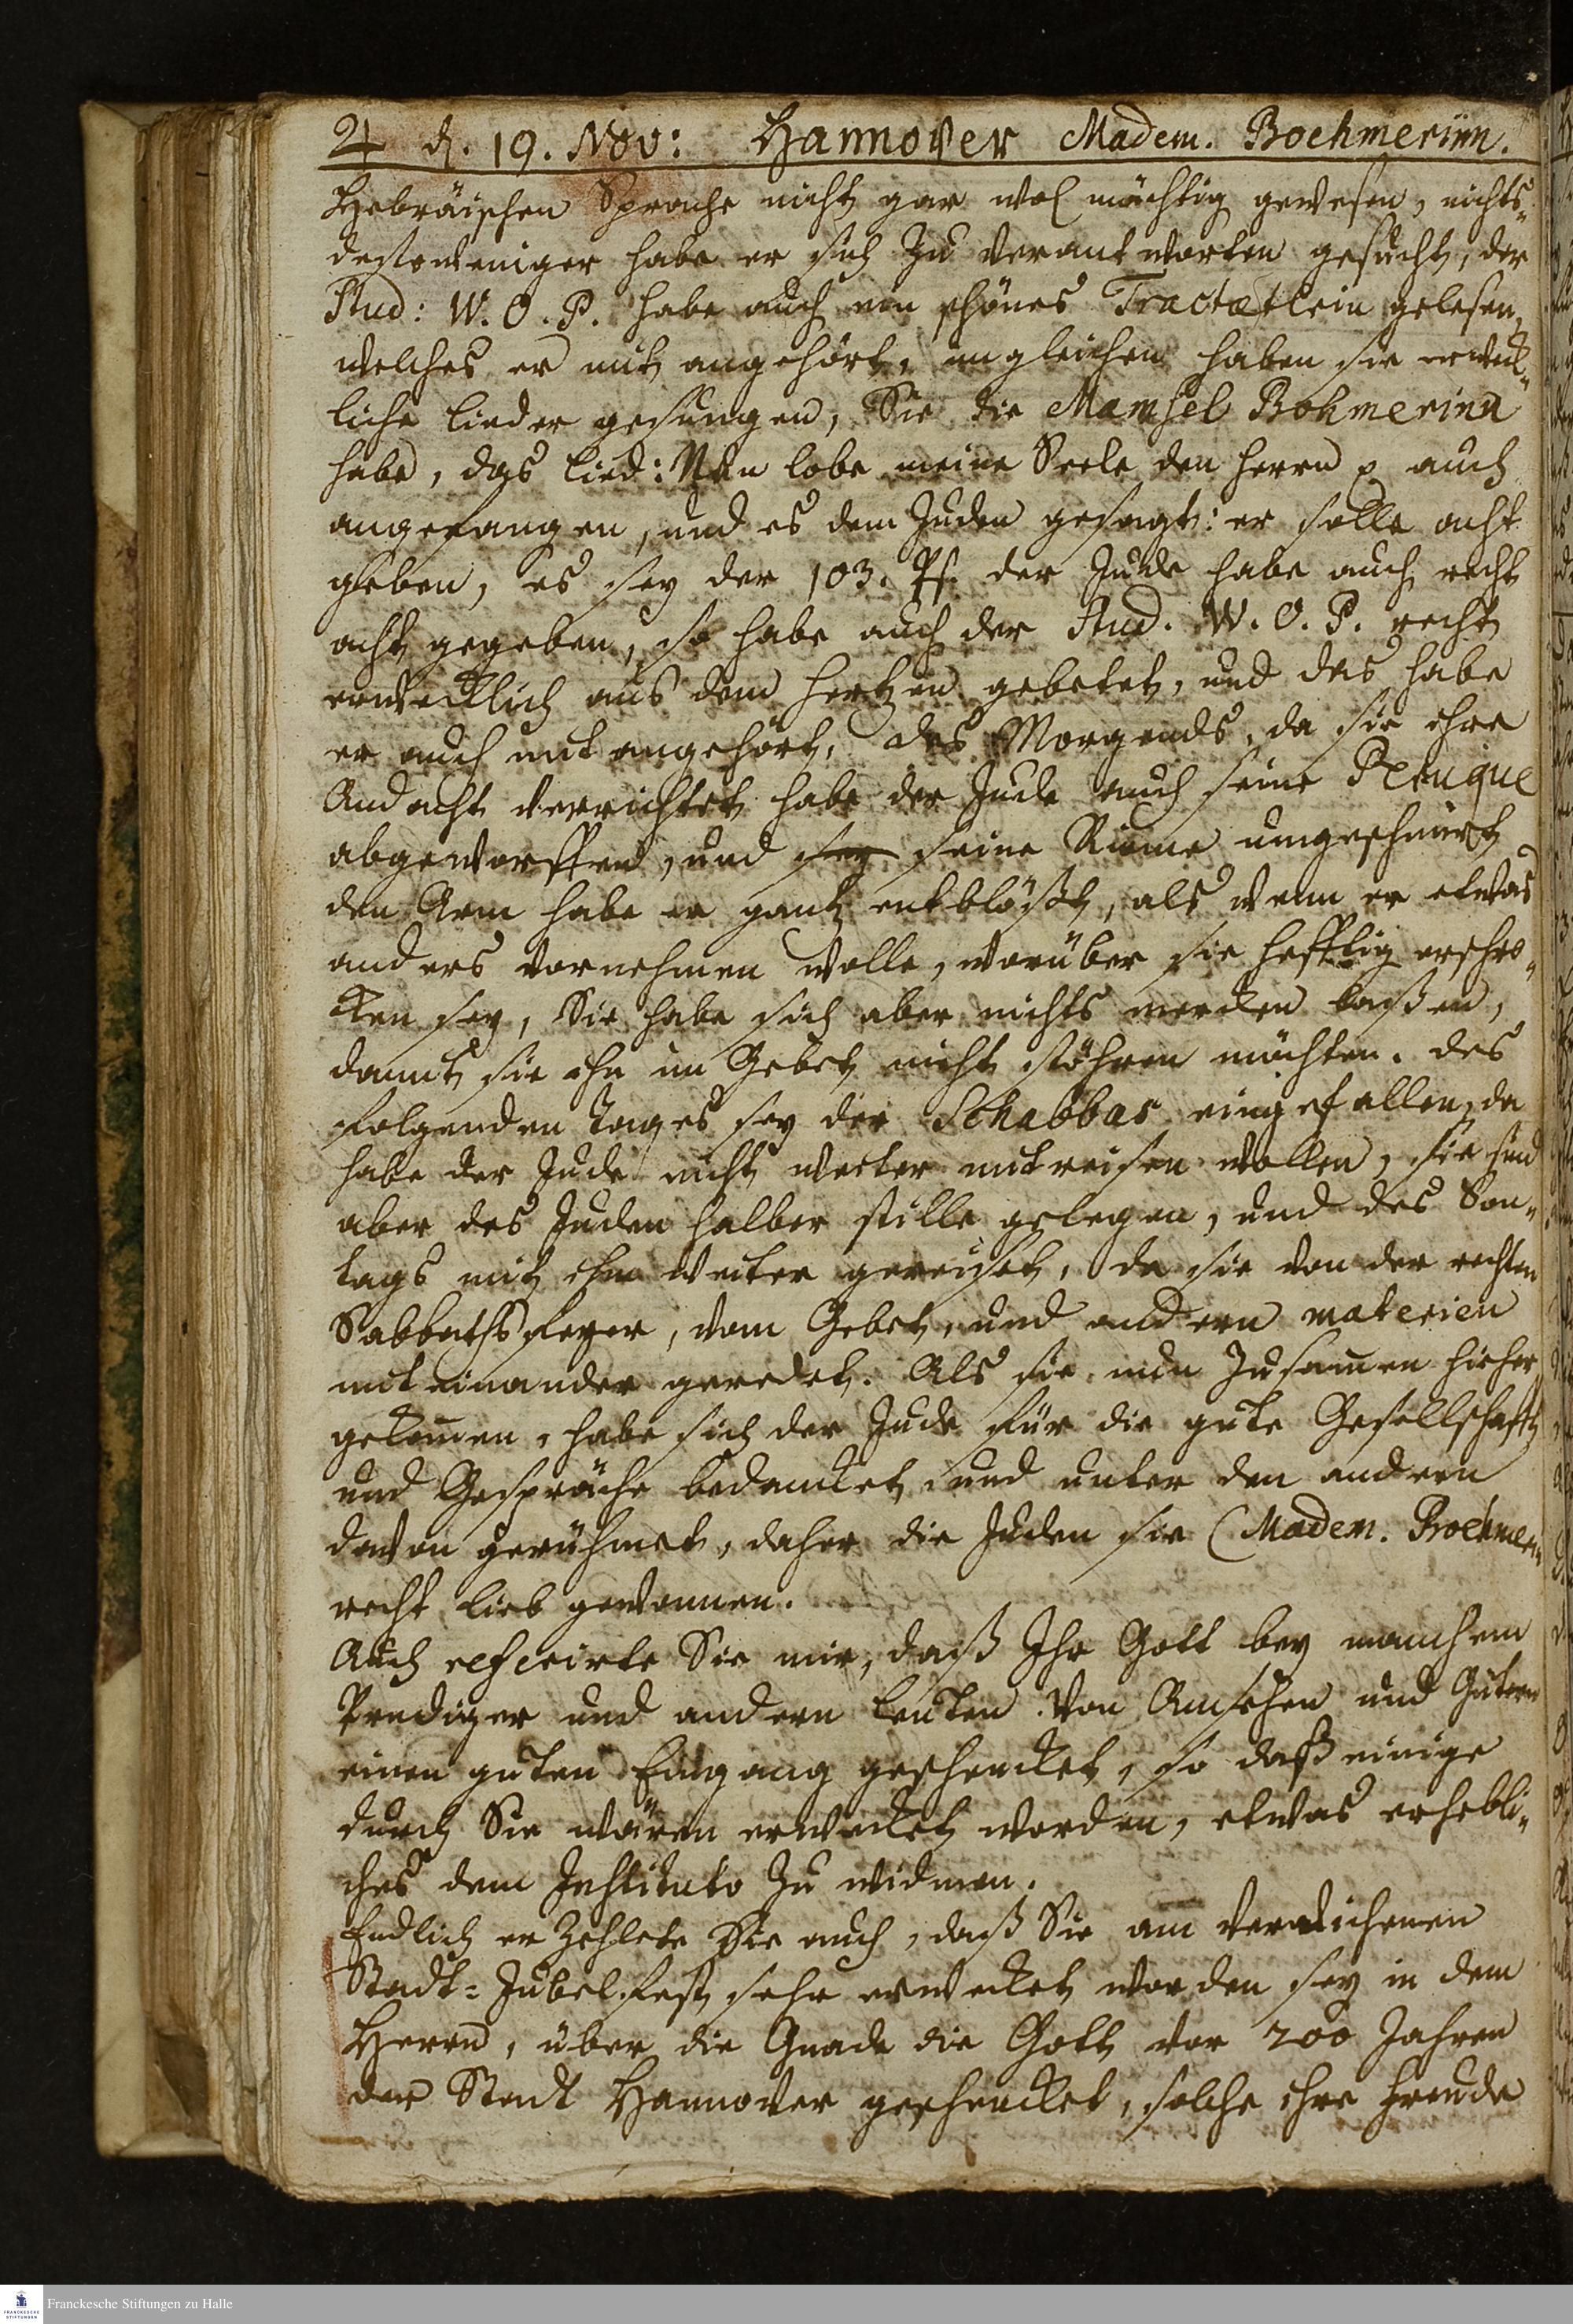 ♃ d. 19. Nov: Hannover Madem. Boehmerinn.
Hebräischen Sprache nicht gar wol mächtig gewesen, nichts-
destoweniger habe er sich zu verantworten gesucht, der
Stud: W. O. P. habe auch ein schönes Tractætlein gelesen,
welches er mit angehört, imgleichen haben sie erweck-
liche Lieder gesungen, Sie die Mamsel Bohmerinn
habe, das Lied: Nun lobe meine Seele den Herrn p auch
angefangen, und es dem Juden gesagt: er solle acht
geben, es sey der 103. Ps. der Jude habe auch recht
acht gegeben, so habe auch der Stud. W. O. P. recht
erwecklich aus dem Hertzen gebetet, und das habe
er auch mit angehört, des Morgends, da sie ihre
Andacht verrichtet habe der Jude auch seine Peruque
abgeworffen, und sey seine Rieme umgeschnürt
den Arm habe er gantz entblößt, als wenn er etwas
anders vornehmen wolle, worüber sie hefftig erschro-
cken sey, Sie habe sich aber nichts mercken laßen,
damit sie ihn im Gebet nicht stöhren möchten. des
folgenden Tages sey der Schabbas eingefallen, da
habe der Jude nicht weiter mitreisen wollen, sie sind
aber des Juden halber stille gelegen, und des Son-
tags mit ihm weiter gereiset, da sie von der rechten
Sabbathsfeyer, vom Gebet, und andern materien
mit einander geredet. Als sie nun zusam̅en hieher
gekom̅en, habe sich der Jude für die gute Gesellschafft
und Gespräche bedancket, und unter den andern
davon gerühmet, daher die Juden sie (Madem. Boehmer-
recht lieb gewonnen.
Auch referirte Sie mir, daß Ihr Gott bey manchem
Prediger und andern Leuten von Ansehen und Gütern
einen guten Eingang geschencket, so daß einige
durch Sie wären erwecket worden, etwas erhebli-
ches dem Instituto zu widmen.
Endlich erzehlete Sie auch, daß Sie am verwichenen
Stadt-Jubelfest sehr erwecket worden sey in dem
Herrn, über die Gnade die Gott vor 200 Jahren
der Stadt Hannover geschencket, solche ihre Freude
Franckesche Stiftungen zu Halle
FRANCKESCHE
STIFTUNGEN